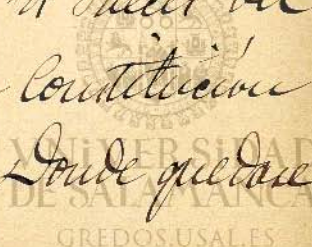 Constitución
Donde quedase
VNiVERSiDAD
DE SALAMANCA
GREDOS.USAL.ES